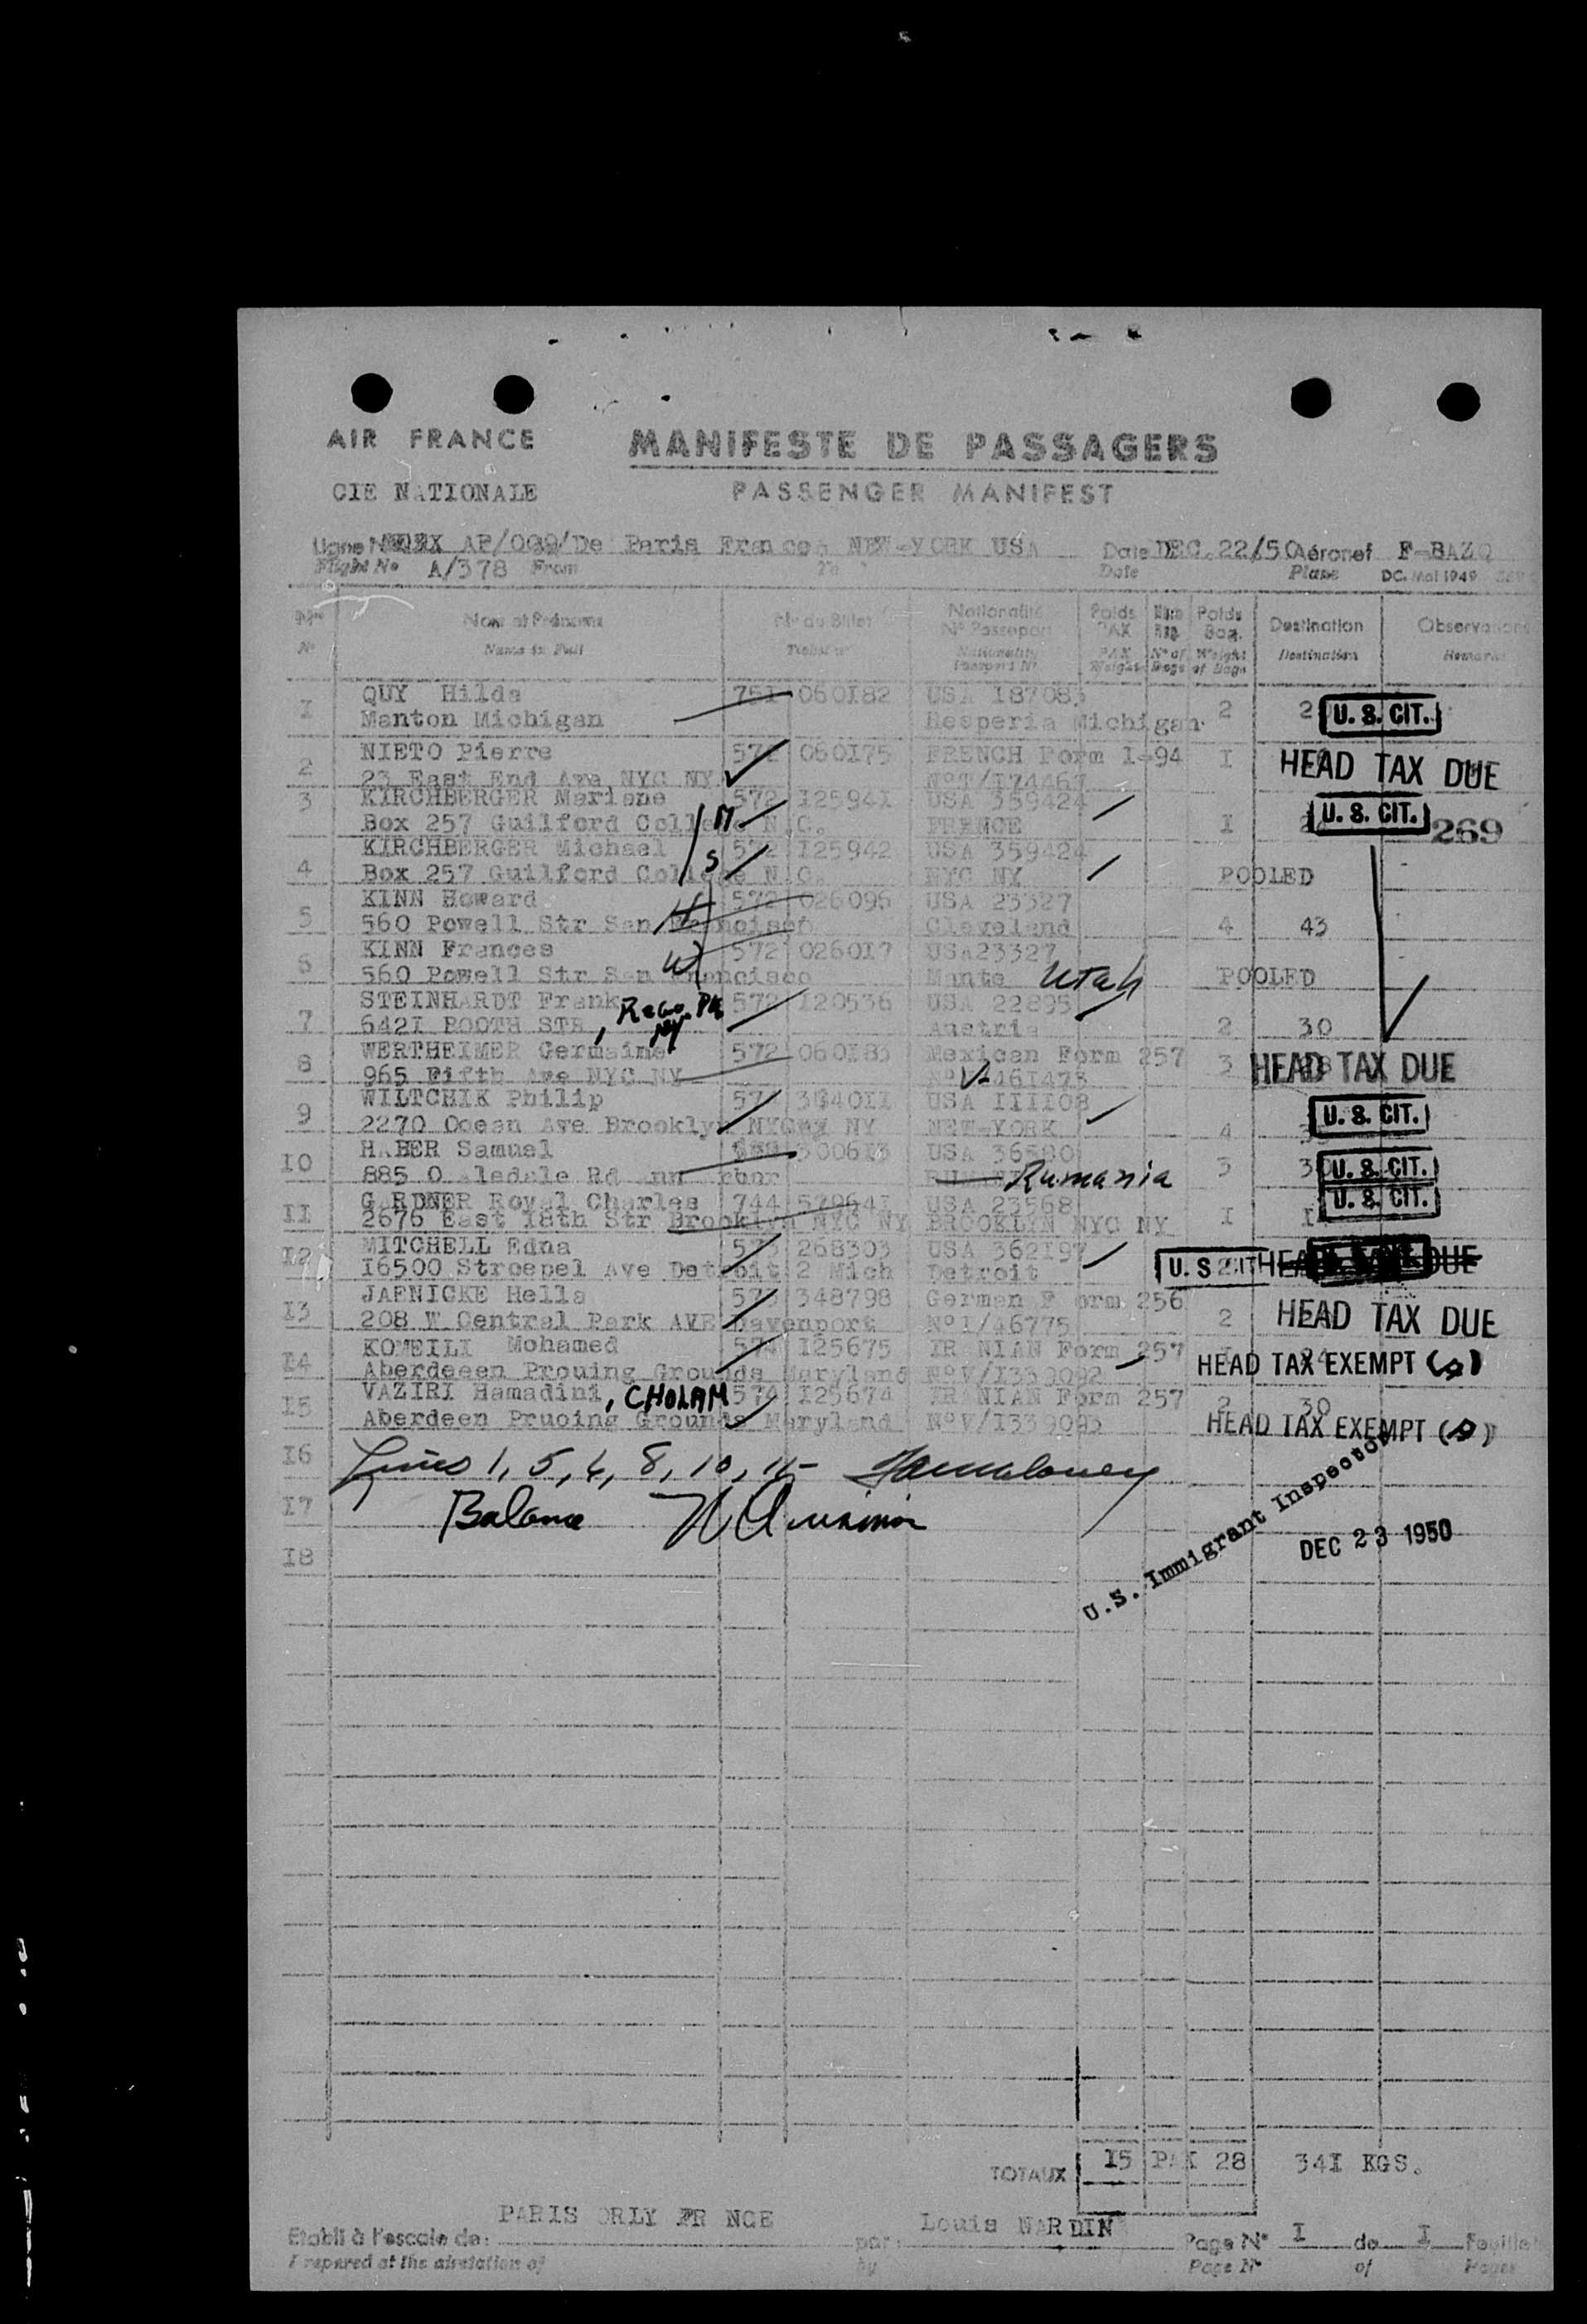 AIR FRANCE MANIFESTE DE PASSAGERS
CIE NATIONALE PASSENGER MANIFEST
Ligne No AF/009/De Paris France NEW-YORK USA Date DEC.22/50 Aéronef F-BAZQ
Flight No A/378 From To Date Plane DC. Mai 1949
Nom et Prénoms No du Billet Nationalité No Passeport Poids PAX Poids Bag. Destination Observations
No Name in Full Ticket no Nationality Passport No PAX Weight No of Bags Weight of Bags Destination Remarks
1 QUY Hilda 751 060182 USA 187083
Manton Michigan Hesperia Michigan 2 2 U. S. CIT.
2 NIETO Pierre 572 060175 FRENCH Form I-94 I HEAD TAX DUE
23 East End Ave NYC NY NoT/174467
3 KIRCHBERGER Mariane 572 125941 USA 359424
Box 257 Guilford College N.C. M FRANCE I U. S. CIT. 269
4 KIRCHBERGER Michael S 572 125942 USA 359424
Box 257 Guilford College N.C. NYC NY POOLED
5 KINN Howard H 572 026096 USA 23327
560 Powell Str San Francisco Cleveland 4 43
6 KINN Frances W 572 026017 USA23327
560 Powell Str San Francisco Mante Utah POOLED
7 STEINHARDT Frank 572 120536 USA 22895
6421 BOOTH STR, Rego Pk NY Austria 2 30
8 WERTHEIMER Germaine 572 060183 Mexican Form 257 3 HEAD TAX DUE
965 Fifth Ave NYC NY No V-461473
9 WILTCHIK Philip 57 394011 USA 111108 U. S. CIT.
2270 Ocean Ave Brooklyn NYC NY NEW-YORK 4
10 HABER Samuel 300613 USA 36590
885 O ledale Rd Ann rbor Rumania 3 U. S. CIT.
11 GARDNER Royal Charles 744 579641 USA 23568 U. S. CIT.
2676 East 18th Str Brooklyn NYC NY BROOKLYN NYC NY I
12 MITCHELL Edna 573 268303 USA 362197
16500 Stroepel Ave Detroit 2 Mich Detroit U. S CIT HEAD TAX DUE
13 JAENICKE Hella 573 348798 German Form 256
208 W Central Park AVE Davenport No I/46775 2 HEAD TAX DUE
14 KOMEILI Mohamed 574 125675 IRANIAN Form 257
Aberdeeen Prouing Grounds Maryland NoV/1339092 HEAD TAX EXEMPT
15 VAZIRI Hamadini, CHOLAM 574 125674 IRANIAN Form 257 2 30
Aberdeen Pruoing Grounds Maryland NoV/1339093 HEAD TAX EXEMPT
16 Lines 1, 5, 6, 8, 10, 11-
17 Balance
U.S. Immigrant Inspector
DEC 23 1950
18
TOTAUX 15 PAX 28 341 KGS.
PARIS ORLY FR NCE Louis NARDIN
Etabli à l'escale de: par: Page No I de I Feuilles
Prepared at the airstation of by Page No of Pages